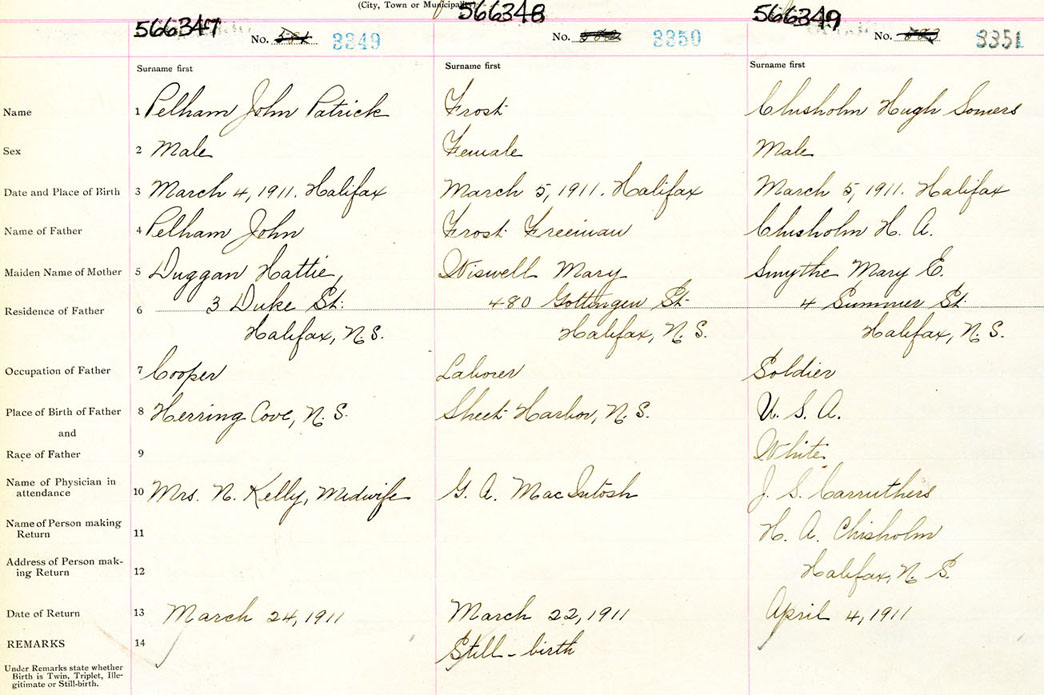 (City, Town or Municipality)
566347 566348 566349
No. 3349 No. 3350 No. 3351
Surname first Surname first Surname first
Name 1 Pelham John Patrick Frost Chisholm Hugh Somers
Sex 2 Male Female Male
Date and Place of Birth 3 March 4, 1911. Halifax March 5, 1911. Halifax March 5, 1911. Halifax
Name of Father 4 Pelham John Frost Freeman Chisholm H. A.
Maiden Name of Mother 5 Duggan Hattie, Wiswell Mary Smythe Mary E.
Residence of Father 6 3 Duke St. 480 Gottingen St. 4 Summer St.
Halifax, N. S. Halifax, N. S. Halifax, N. S.
Occupation of Father 7 Cooper Laborer Soldier
Place of Birth of Father 8 Herring Cove, N. S. Sheet Harbor, N. S. U. S. A.
and
Race of Father 9 White
Name of Physician in
attendance 10 Mrs. N. Kelly, Midwife G. A. MacIntosh J. S. Carruthers
Name of Person making
Return 11 H. A. Chisholm
Address of Person mak-
ing Return 12 Halifax, N. S.
Date of Return 13 March 24, 1911 March 22, 1911 April 4, 1911
REMARKS 14 Still-birth
Under Remarks state whether
Birth is Twin, Triplet, Ille-
gitimate or Still-birth.